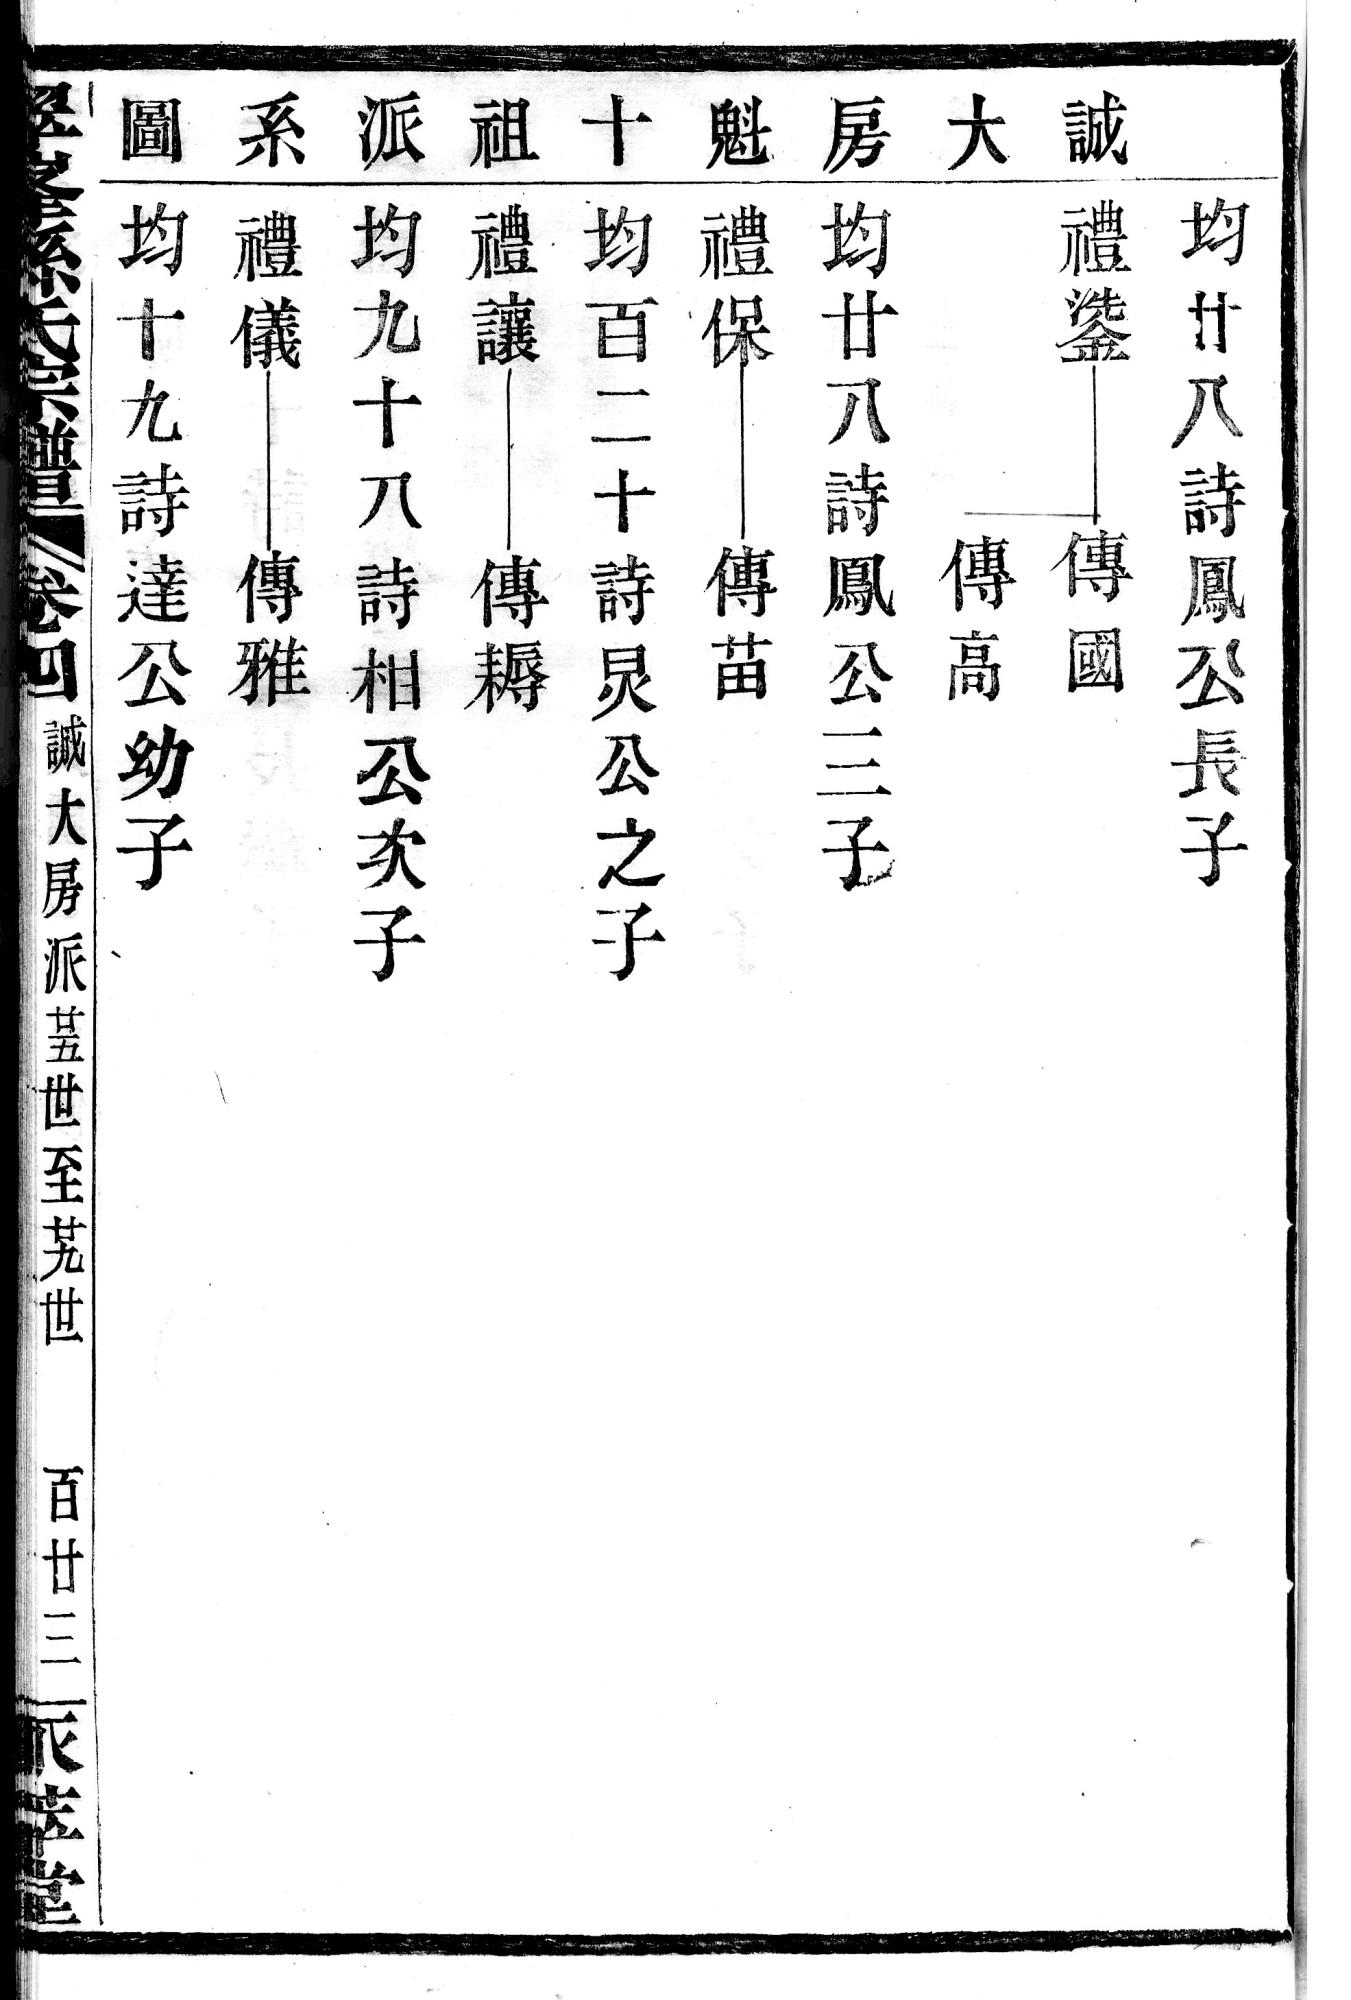 誠大房魁十祖派系圖
均廿八詩鳳公長子
禮鍌
傳國
傳高
均廿八詩鳳公三子
禮保
傳苗
均百二十詩炅公之子
禮讓
傳耨
均九十八詩相公次子
禮儀
傳雅
均十九詩達公幼子
孫氏宗譜
卷四
誠大房派廿五世至廿九世
百廿三
堂